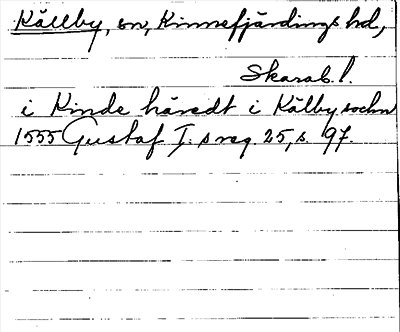 Källby, sn, Kinnefjärdings hd,
Skarab. l.
i Kinde häredt i Kälby sochn
1555 Gustaf I:s reg. 25, s. 97.